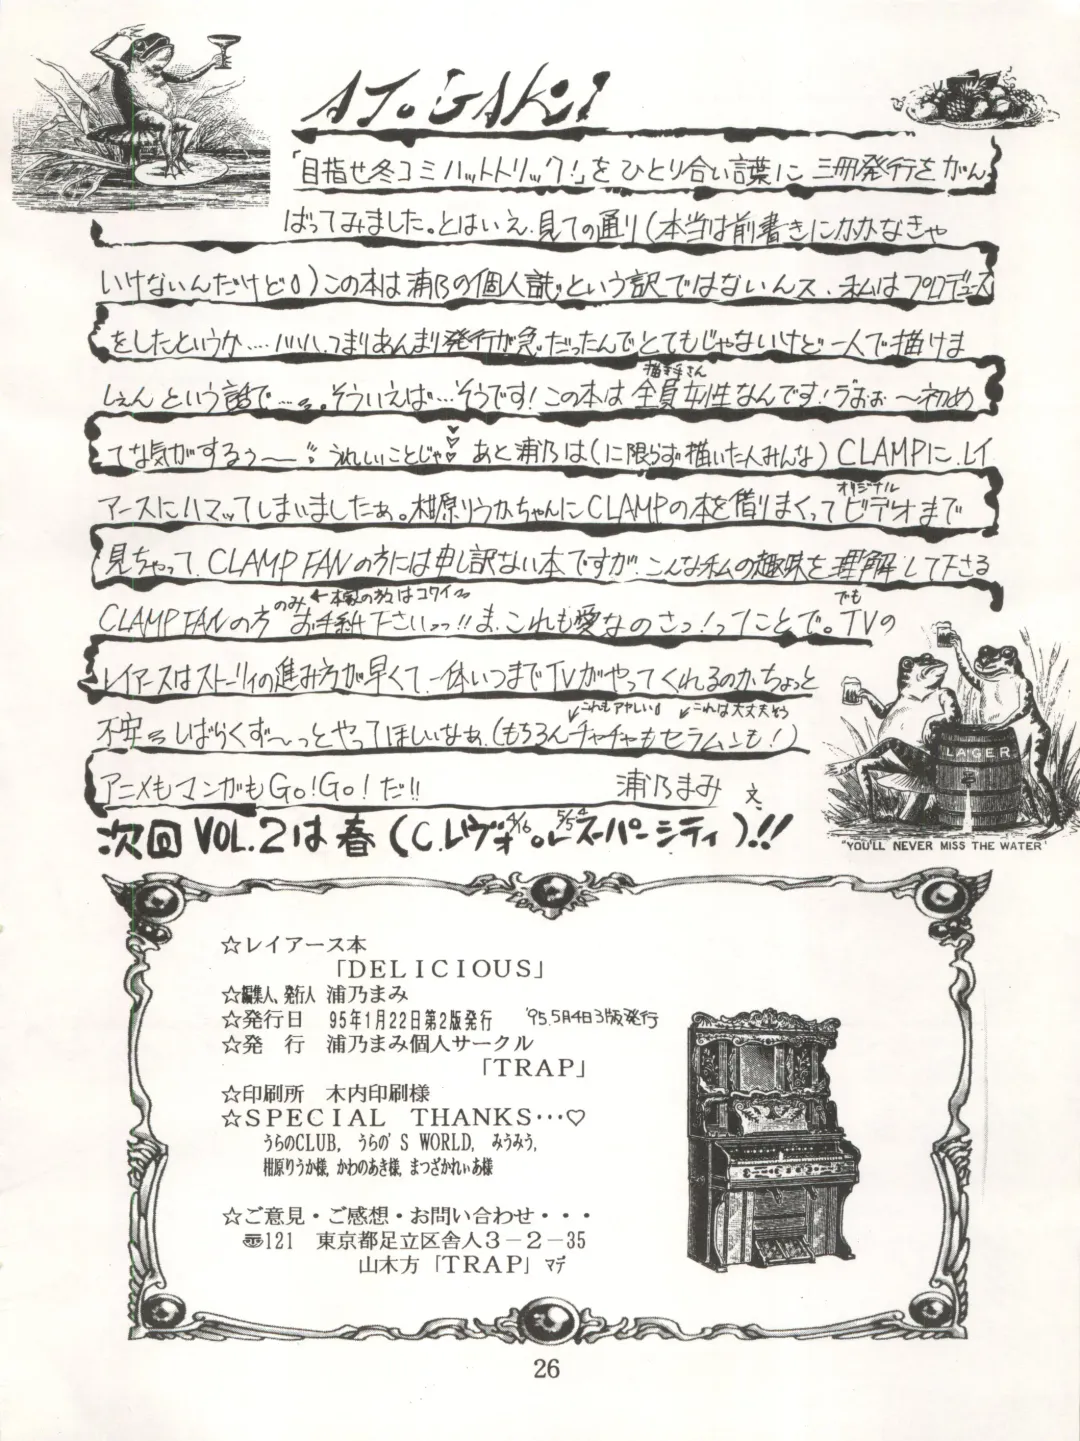 ATOGAKI
「目指せ冬コミハットトリック!」をひとり合い言葉に三冊発行をがん
ばってみました。とはいえ、見ての通り(本当は前書きにかかなきゃ
いけないんだけど)この本は浦乃の個人誌という訳ではないんス、私はプロデュース
をしたというか…ハハハ、つまりあんまり発行が急だったんでとてもじゃないけど一人で描けま
しぇんという話で…。そういえば…そうです!この本は全員女性なんです!うおぉ〜初め
描き手さん
てな気がするぅ〜 うれしいことじゃ♡ あと浦乃は(に限らず描いた人みんな)CLAMPに、レイ
アースにハマッてしまいましたぁ。柑原りうかちゃんにCLAMPの本を借りまくってビデオまで
オリジナル
見ちゃって、CLAMP FANの方には申し訳ない本ですが、こんな私の趣味を理解して下さる
CLAMP FANの方のみお手紙下さいっっ!!ま、これも愛なのさっ!ってことで。でもTVの
←本家の方はコワイ
レイアースはストーリィの進み方が早くて、一体いつまでTVがやってくれるのか、ちょっと
不安 しばらくず〜っとやってほしいなぁ。(もちろんチャチャもセラムンも!)
これもアヤしい これは大丈夫そう
アニメもマンガもGo!Go!だ!! 浦乃まみ
次回VOL.2は春(C.レヴォorスーパーシティ)!!
4/16 5/5
LAGER
"YOU'LL NEVER MISS THE WATER"
☆レイアース本
「DELICIOUS」
☆編集人、発行人 浦乃まみ
☆発行日 95年1月22日第2版発行 '95.5月4日3版発行
☆発 行 浦乃まみ個人サークル
「TRAP」
☆印刷所 木内印刷様
☆SPECIAL THANKS…♡
うらのCLUB, うらの'S WORLD, みうみう,
柑原りうか様, かわのあき様, まつざかれぃあ様
☆ご意見・ご感想・お問い合わせ・・・
〠121 東京都足立区舎人3-2-35
山木方「TRAP」マデ
26